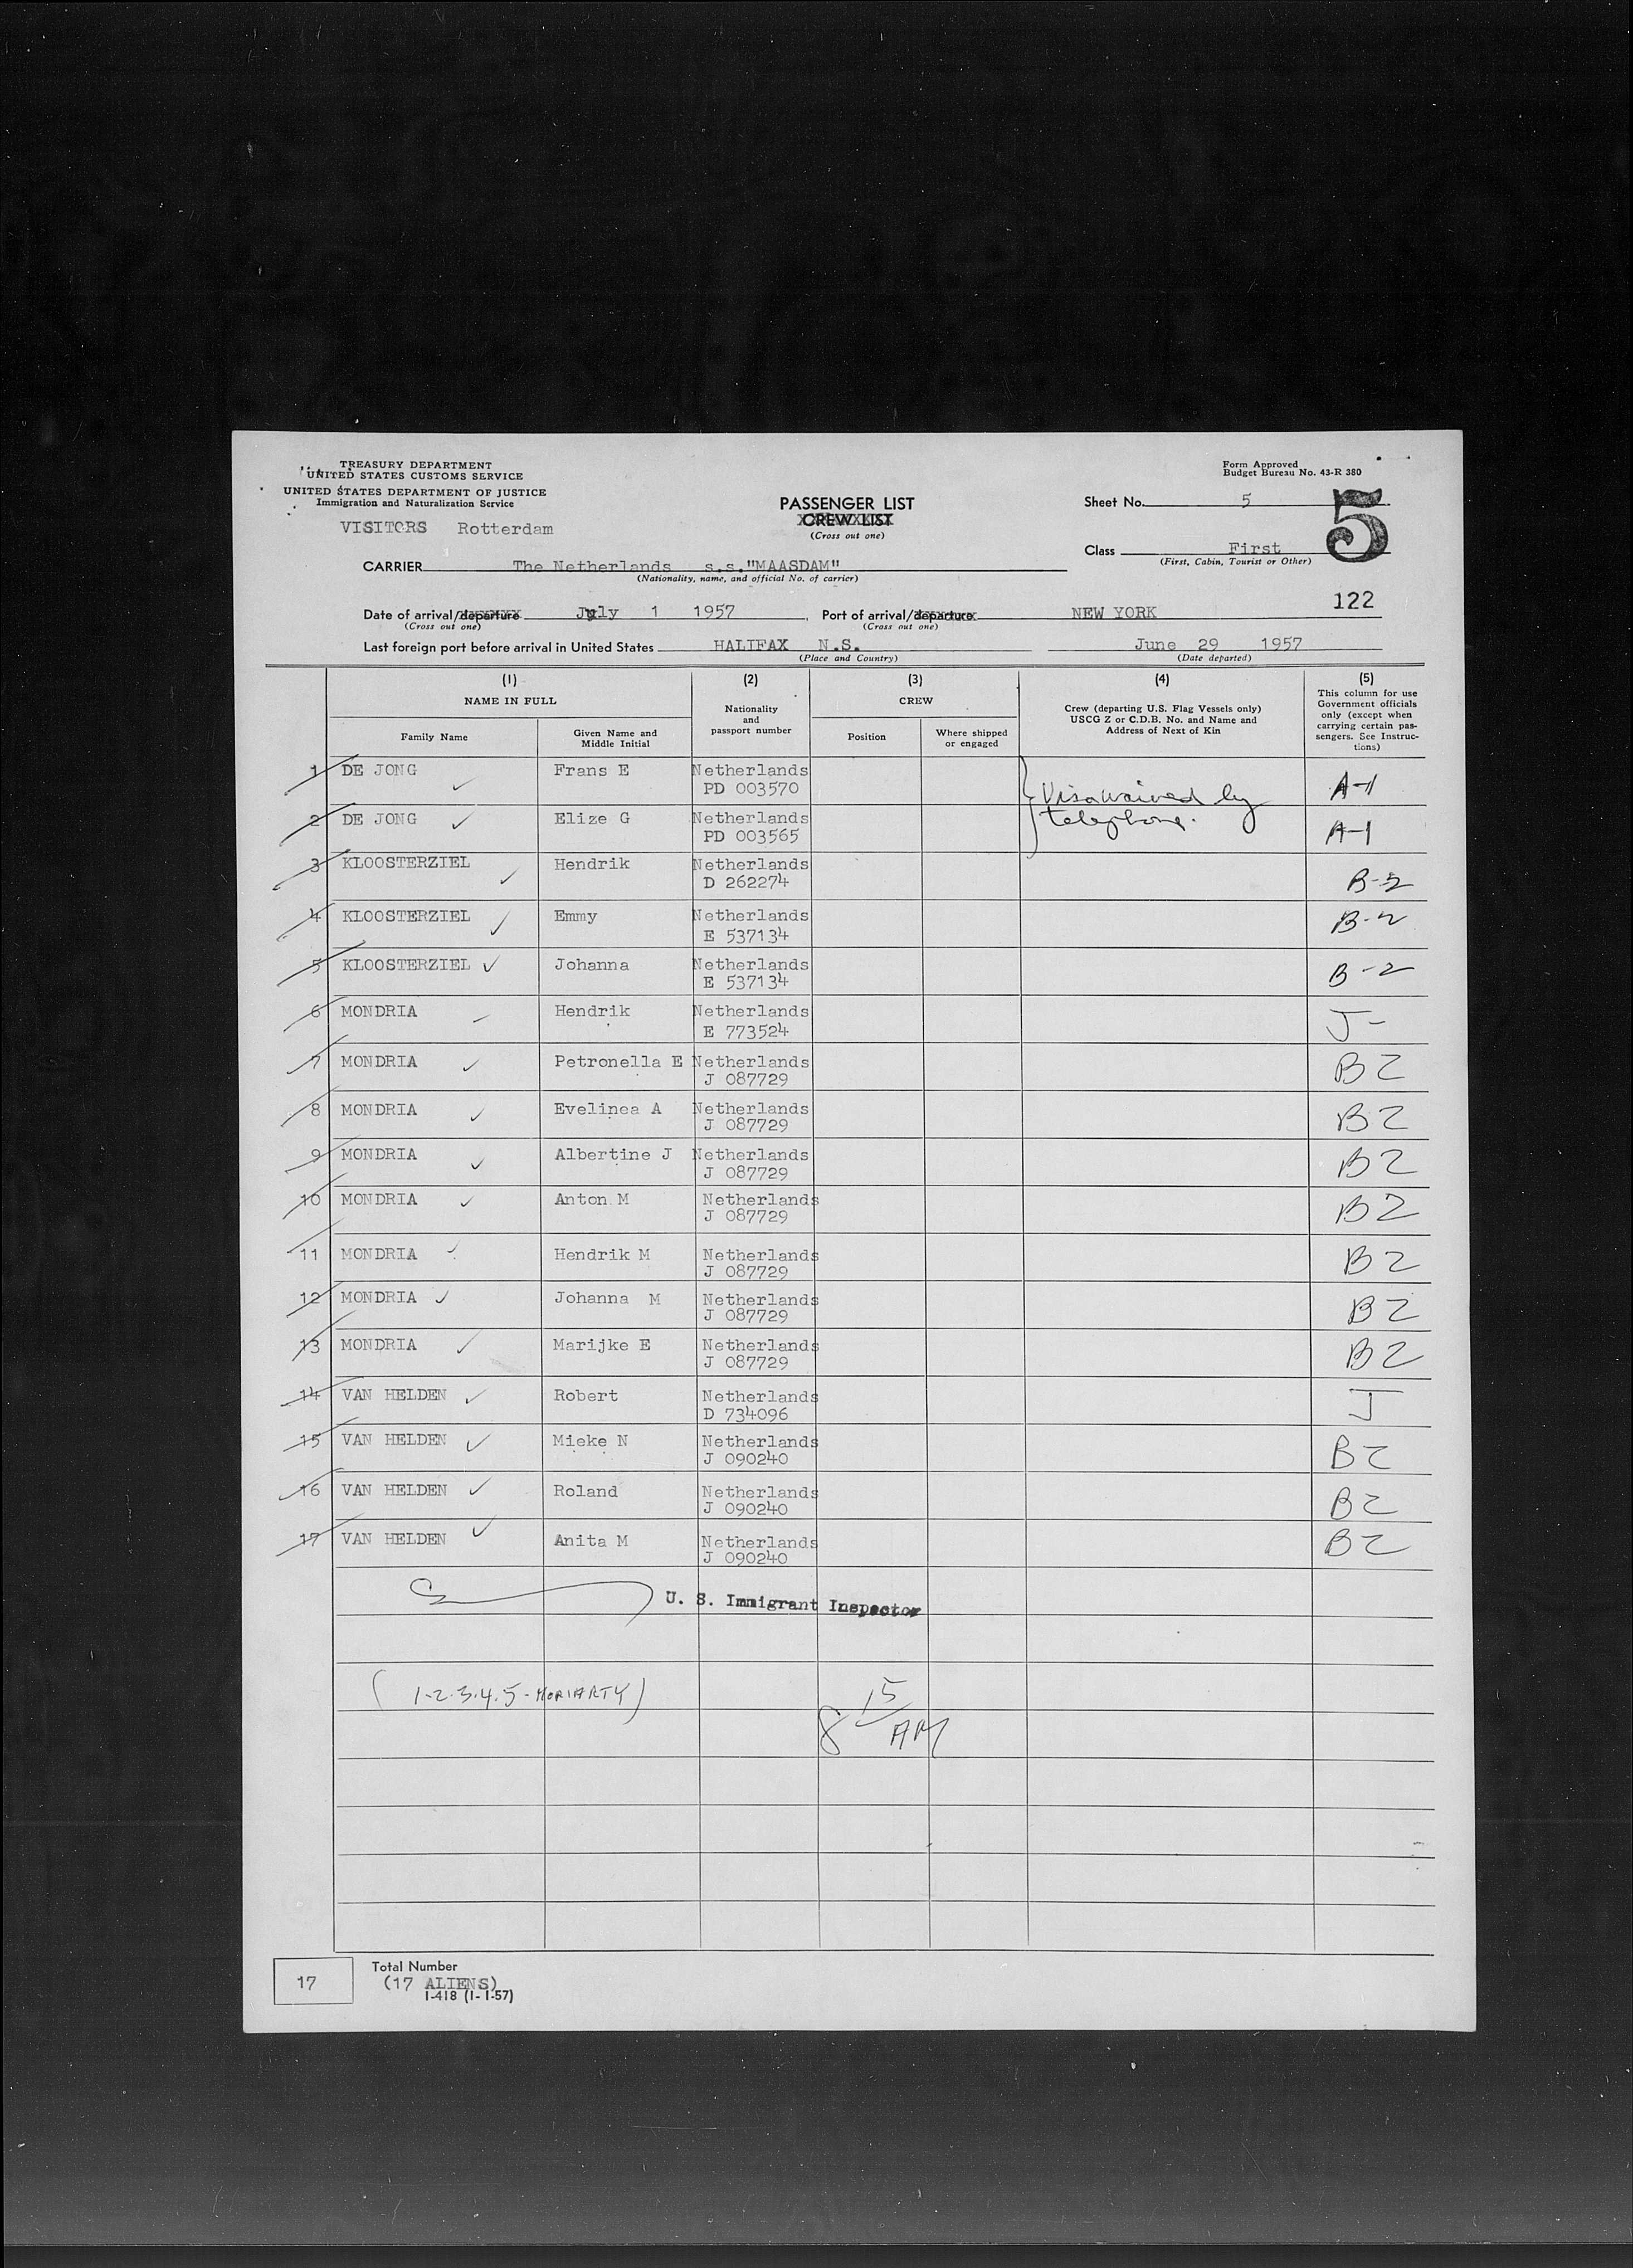 TREASURY DEPARTMENT
UNITED STATES CUSTOMS SERVICE
UNITED STATES DEPARTMENT OF JUSTICE
Immigration and Naturalization Service
VISITORS Rotterdam
PASSENGER LIST
CREW LIST
(Cross out one)
Form Approved
Budget Bureau No. 43-R 380
Sheet No. 5
5
Class First
(First, Cabin, Tourist or Other)
CARRIER The Netherlands s.s."MAASDAM"
(Nationality, name, and official No. of carrier)
122
Date of arrival/departure July 1 1957, Port of arrival/departure NEW YORK
(Cross out one) (Cross out one)
Last foreign port before arrival in United States HALIFAX N.S. June 29 1957
(Place and Country) (Date departed)
(1) (2) (3) (4) (5)
NAME IN FULL
Family Name
Given Name and
Middle Initial
Nationality
and
passport number
CREW
Position
Where shipped
or engaged
Crew (departing U.S. Flag Vessels only)
USCG Z or C.D.B. No. and Name and
Address of Next of Kin
This column for use
Government officials
only (except when
carrying certain pas-
sengers. See Instruc-
tions)
1 DE JONG Frans E Netherlands
PD 003570 A-1
Visa waived by
telephone.
2 DE JONG Elize G Netherlands
PD 003565 A-1
3 KLOOSTERZIEL Hendrik Netherlands
D 262274 B-2
4 KLOOSTERZIEL Emmy Netherlands
E 537134 B-2
5 KLOOSTERZIEL Johanna Netherlands
E 537134 B-2
6 MONDRIA Hendrik Netherlands
E 773524 J-
7 MONDRIA Petronella E Netherlands
J 087729 B2
8 MONDRIA Evelinea A Netherlands
J 087729 B2
9 MONDRIA Albertine J Netherlands
J 087729 B2
10 MONDRIA Anton M Netherlands
J 087729 B2
11 MONDRIA Hendrik M Netherlands
J 087729 B2
12 MONDRIA Johanna M Netherlands
J 087729 B2
13 MONDRIA Marijke E Netherlands
J 087729 B2
14 VAN HELDEN Robert Netherlands
D 734096 J
15 VAN HELDEN Mieke N Netherlands
J 090240 B2
16 VAN HELDEN Roland Netherlands
J 090240 B2
17 VAN HELDEN Anita M Netherlands
J 090240 B2
U. S. Immigrant Inspector
(1-2-3-4-5-MORIARTY)
8 15 AM
17
Total Number
(17 ALIENS)
I-418 (1-1-57)